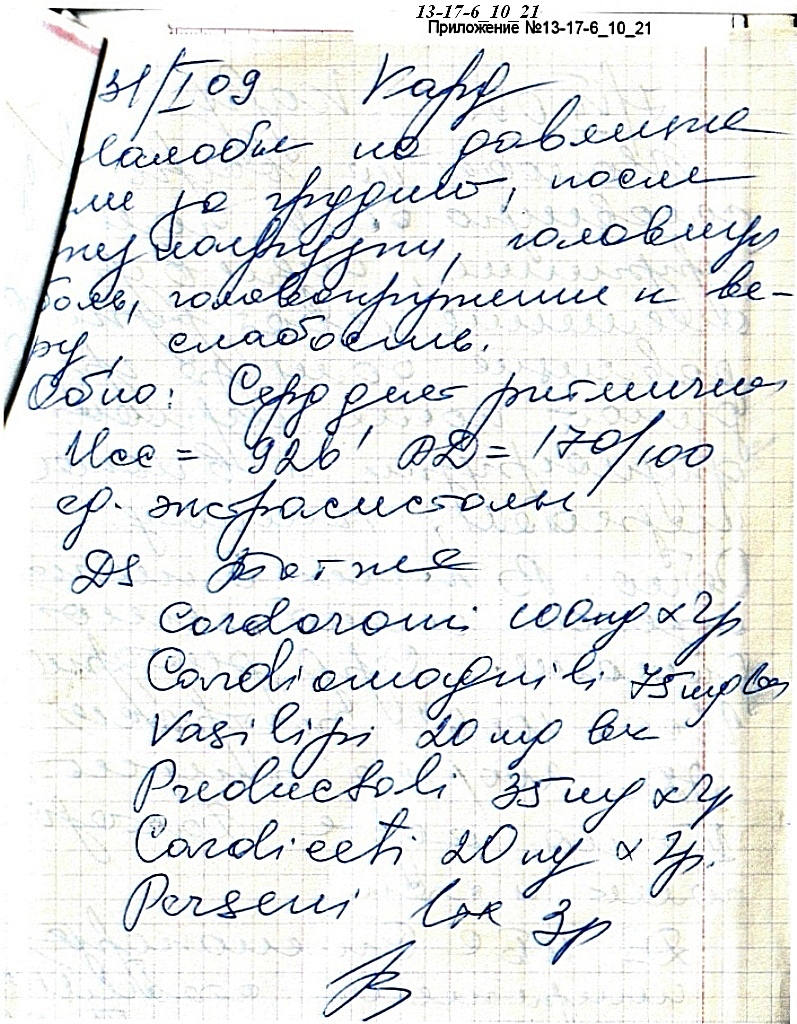 13-17-6_10_21
Приложение №13-17-6_10_21
31/I 09 Кард
Жалобы на давящие
за грудиной, после
нагрузки, головную
боль, головокружение к ве-
ру, слабость.
Обно: Сердце ритмичн
Чсс = 92 в' АД = 170/100
ед. экстрасистолы
DS Тот же
Cordaroni 100 mg x 2р
Cardiomagnili 75 mg веч
Vasilipi 20 mg веч
Preductali 35 mg x 2р
Cardiceti 20 mg x 2р.
Perseni 1 т x 3р